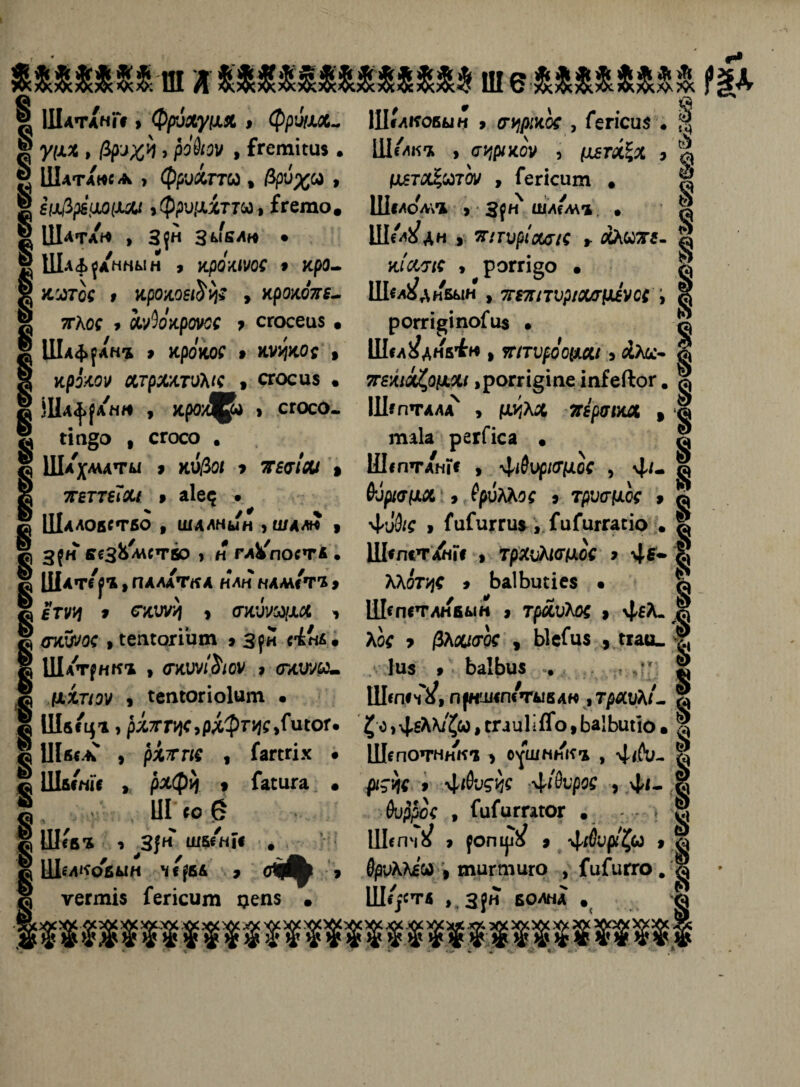 Ш А Ш Е
Шата́нїе, φρύαγμα, φρύμα-
γμα, βρυχὴ, ῥόθιον, fremitus.
Шата́юсѧ, φρυάττω, βρύχω,
ἐμβρέμομαι, φρυμάττω, fremo.
Шата́ю, зри зы́блю.
Шафра́нный, κρόκινος, κρο-
κωτὸς, κροκοειδὴς, κροκόπε-
πλος, ἀνθόκρονος, croceus.
Шафра́нъ, κρόκος, κνῆκος,
κρόκον ἀτρακτυλὶς, crocus.
Шафра́ню, croco-
tingo, croco.
Ша́хматы, κύβοι, πεσίαι,
πεττεῖαι, aleę.
Шаловство, шалный, шалю,
зри безꙋмство, и глꙋпость.
Шате́ръ, палатка или наметъ,
ἐτνὴ, σκυνὴ, σκύνωμα,
σκῦνος, tentorium, зри сѣнь.
Ша́трикъ, σκυνίδιον, σκυνω-
μάτιον, tentoriolum.
Шве́цъ, ῥάπτης, ῥάφτης, sutor.
Швеѧ̀, ῥάπτις, sartrix.
Шве́нїе, ῥαφὴ, satura.
Ш со Е
Ше́въ, зри шве́нїе.
Шелко́вый че́рвь,
vermis sericum nens.
Ше́лковый, σηρικὸς, sericus.
Ше́лкъ, σηρικὸν, μετάξα,
μεταξωτὸν, sericum.
Шело́мъ, зри шле́мъ.
Шелꙋди, πιτυρίασις, ἀλωπε-
κίασις, porrigo.
Шелꙋдивый, πεπιτυριασμένος,
porriginosus.
Шелꙋдивѣю, πιτυρόομαι, ἀλω-
πεκιάζομαι, porrigine infestor.
Шепталà, μῆλα πέρσικα,
mala persica.
Шепта́нїе, ψιθυρισμὸς, ψι-
θύρισμα, θρύλλος, τρυσμὸς,
ψύθις, susurrus, susurratio.
Шепета́нїе, τραυλισμὸς, ψε-
λλότης, balbuties.
Шепетливый, τραῦλος, ψελ-
λὸς, βλαισὸς, blesus, trau-
lus, balbus.
Шепечꙋ̀, пришепетываю, τραυλί-
ζω, ψελλίζω, traulisso, balbutio.
Шепотникъ, ѹшникъ, ψιθυ-
ριστὴς, ψιθυστὴς ψίθυρος, ψι-
θυρρὸς, susurrator.
Шепчꙋ̀, ропщꙋ̀, ψιθυρίζω,
θρυλλέω, murmuro, susurro.
Ше́рсть, зри волна̀.